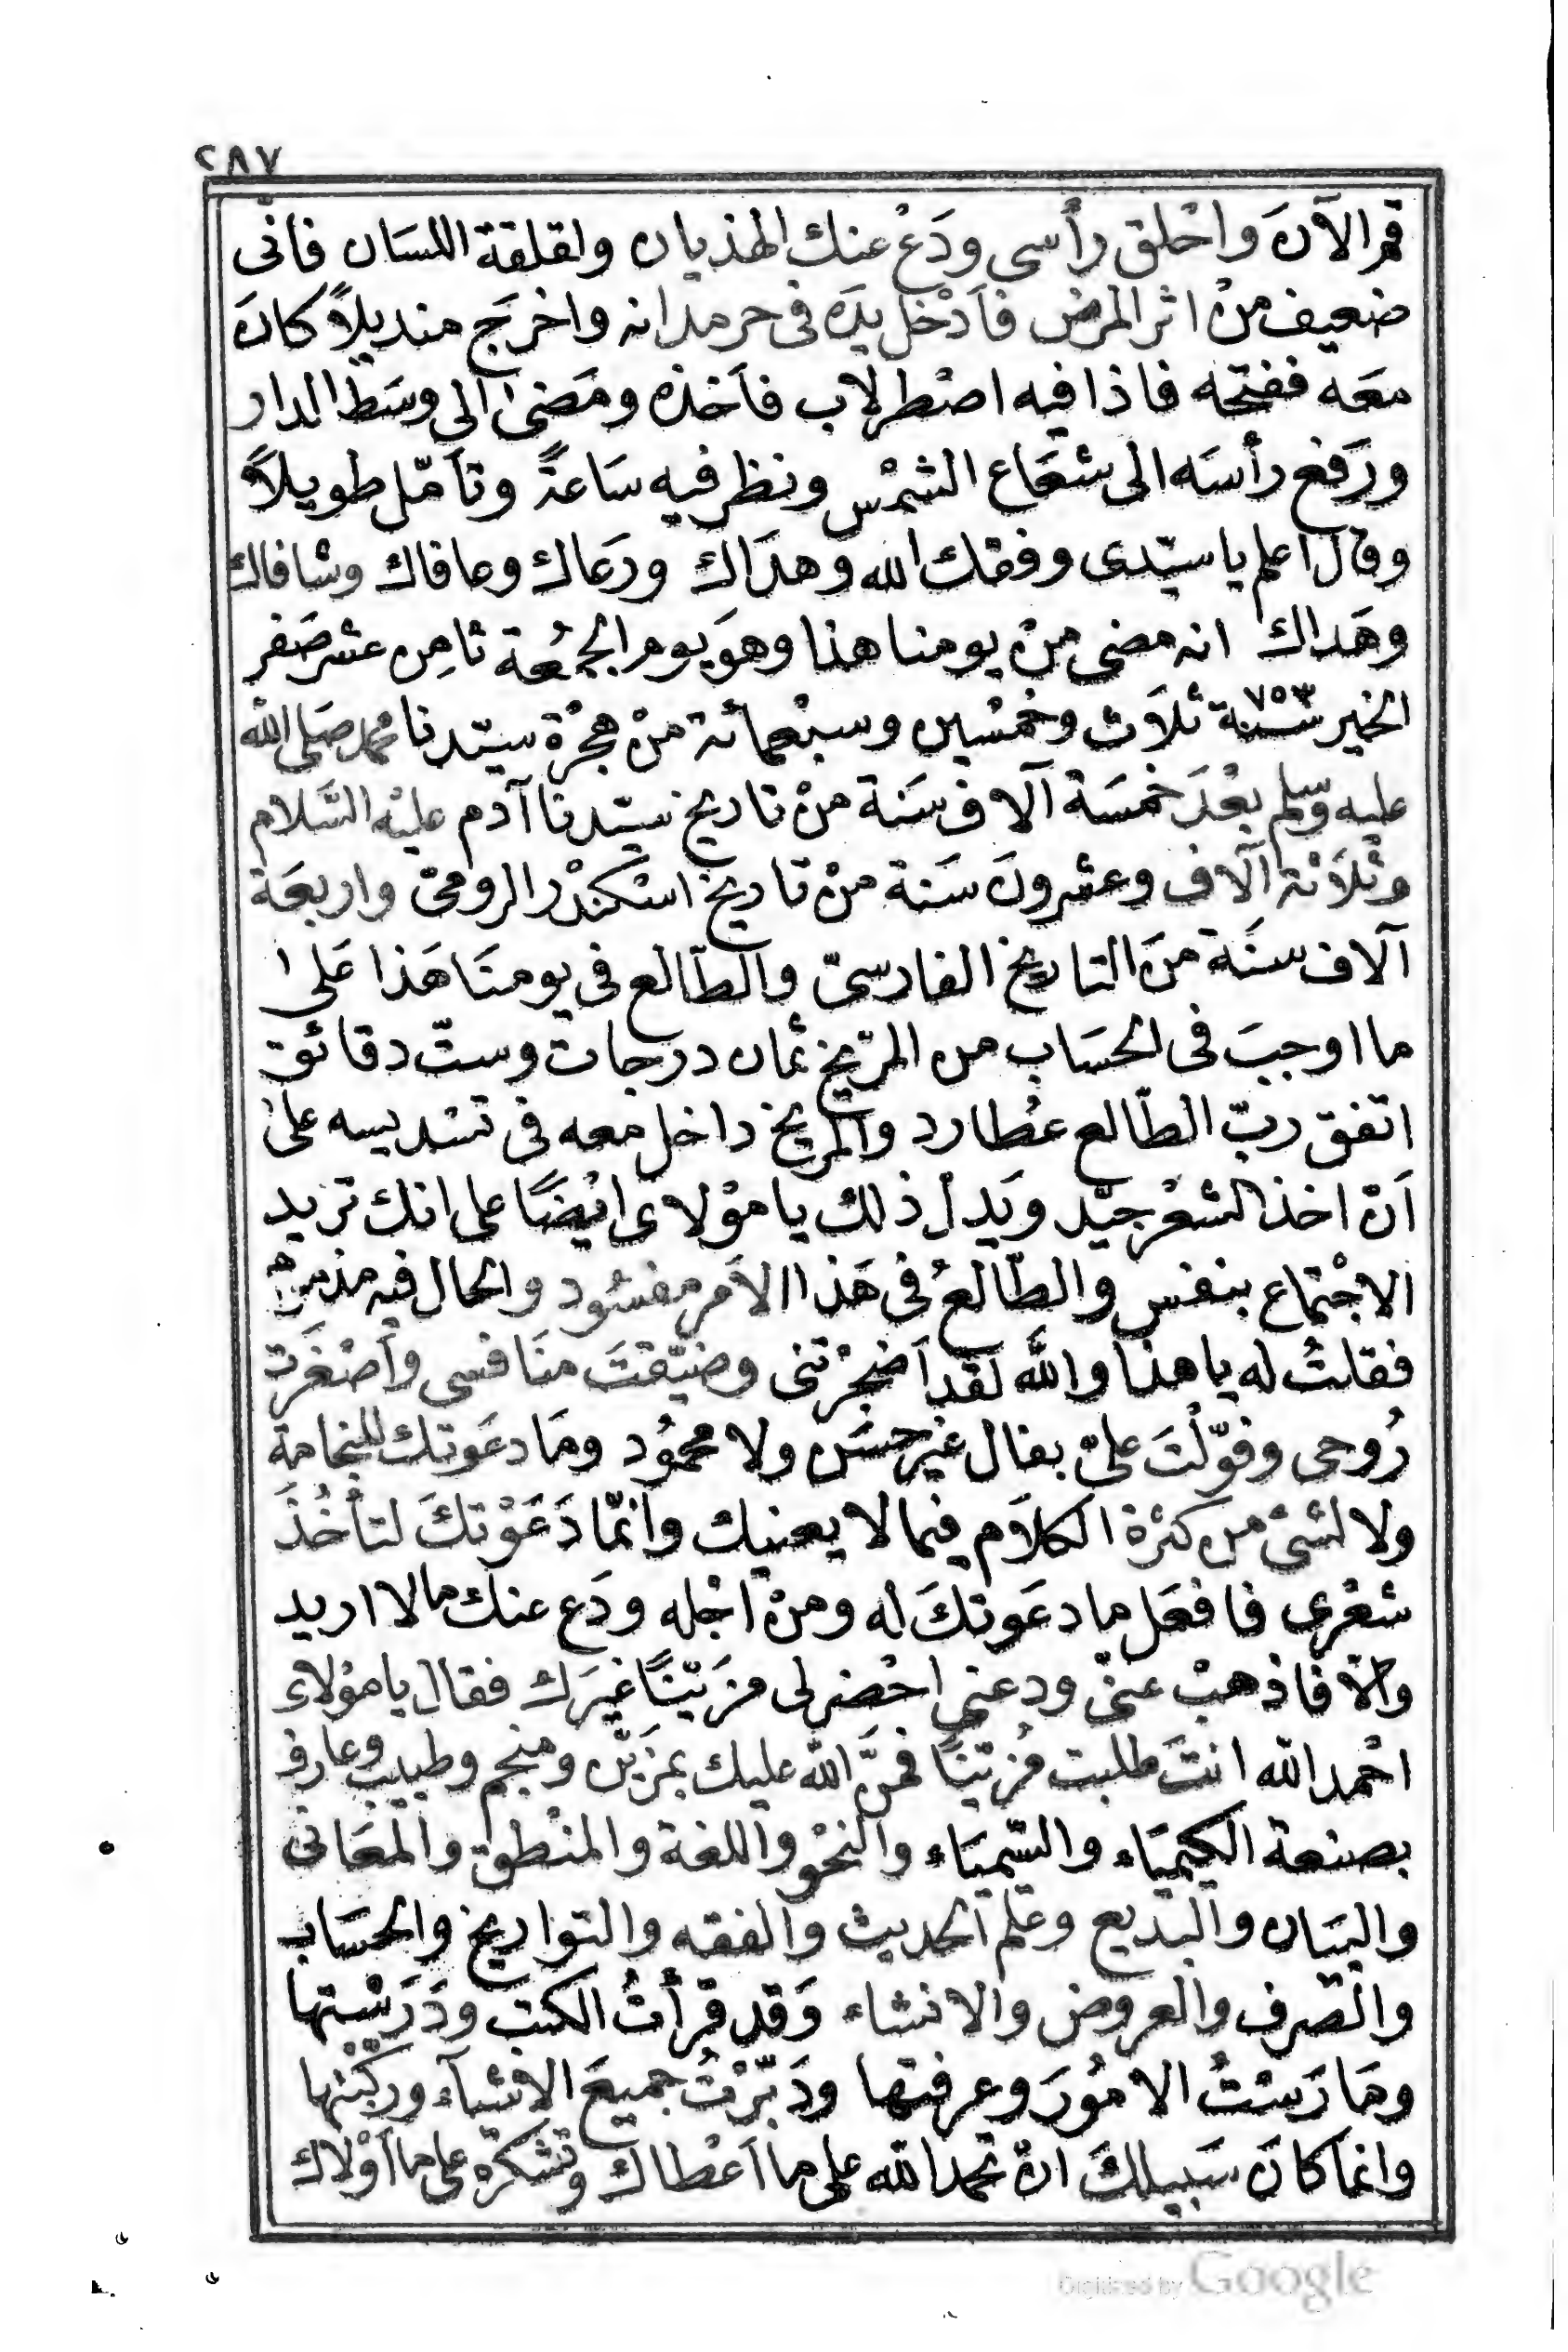 ٢٨٧
قم الآنَ واحْلق رأسى ودَعْ عنك الهذيان ولقلقة اللسَان فانّى
ضعيف منْ اثر المرض فاَدْخل يدَه فى حرمدانه واخرَج منديلاً كانَ
معَه ففتحه فاذا فيه اصْطرلاب فاَخذه ومَضىٰ الى وسَط الدار
ورَفع رأسَه الى شعَاع الشمْس ونظر فيه سَاعةً وتأمّل طويلاً
وقال اعلم يا سيّدى وفقك الله وهدَاك ورَعاك وعافاك وشافاك
وهَداك انه مضى منْ يومنا هذا وهوَ يوم الجمُعة ثامِن عشر صَفر
الخير سنة ٧٥٣ ثلاَث وخمْسين وسبْعمائة منْ هجْرة سيّدنا محمد صَلى الله
عليه وسلم بعْدَ خمسَة آلاف سَنة منْ تاريخ سيّدنا آدم عليْه السَّلام
وثلاَثة آلاف وعشرونَ سَنة منْ تاريخ اسْكنْدر الرومىّ واربعَة
آلاف سنَة منَ التاريخ الفارسىّ والطّالع فى يومنَا هَذا عَلى
ما اوجبَ فى الحسَاب من المرّيخ ثمان درجات وستّ دقائق
اتفق ربّ الطّالع عُطارد والمريخ داخل معه فى تسْديسه علىٰ
اَنّ اخذ الشعْر جيّد ويَدلّ ذلك يا موْلاى ايْضًا على انك تريد
الاجْتماع بنفس والطّالعُ فى هَذا الاَمر مفسُود والحال فيه مذموم
فقلتُ له يا هذا والله لقَد اَضْجرْتنى وضيّقتَ منَافسى وأصْغَرت
رُوحى وفوّلْتَ علىّ بفال غيْر حسَن ولا محمُود ومَا دعَوتك للنجامة
ولا لشىْ من كثرْة الكلاَم فيما لا يعنيك وانمّا دَعَوْتكَ لتأخُذَ
شعْرى فافعَل ما دعَوتكَ له ومنْ اجْله ودَع عنك ما لا اريد
والاّ فاذهبْ عنّى ودعنى احْضر لى مزَيّنًا غيْرَك فقال يا موْلاى
احْمد الله انتَ طلبت مُزيّنًا فمنَّ الله عليك بمزَيّن ومنجم وطبيب وعارف
بصنعة الكيميَاء والسّميَاء والنحْو واللغة والمنْطق والمعَانى
والبيَان والبَديع وعلم الحديث والفقه والتواريخ والحسَاب
والصّرف والعروض والانشاء وَقد قرأتُ الكتب ودَرَسْتها
ومَارَسْتُ الامُورَ وعرفتها ودَبّرْتُ جميعَ الاشيآء وركبْتها
وانمَا كانَ سَبيلكَ انْ تحمد الله على ما اَعْطاك وتشكره على ما اَوْلاك
Digitized by Google